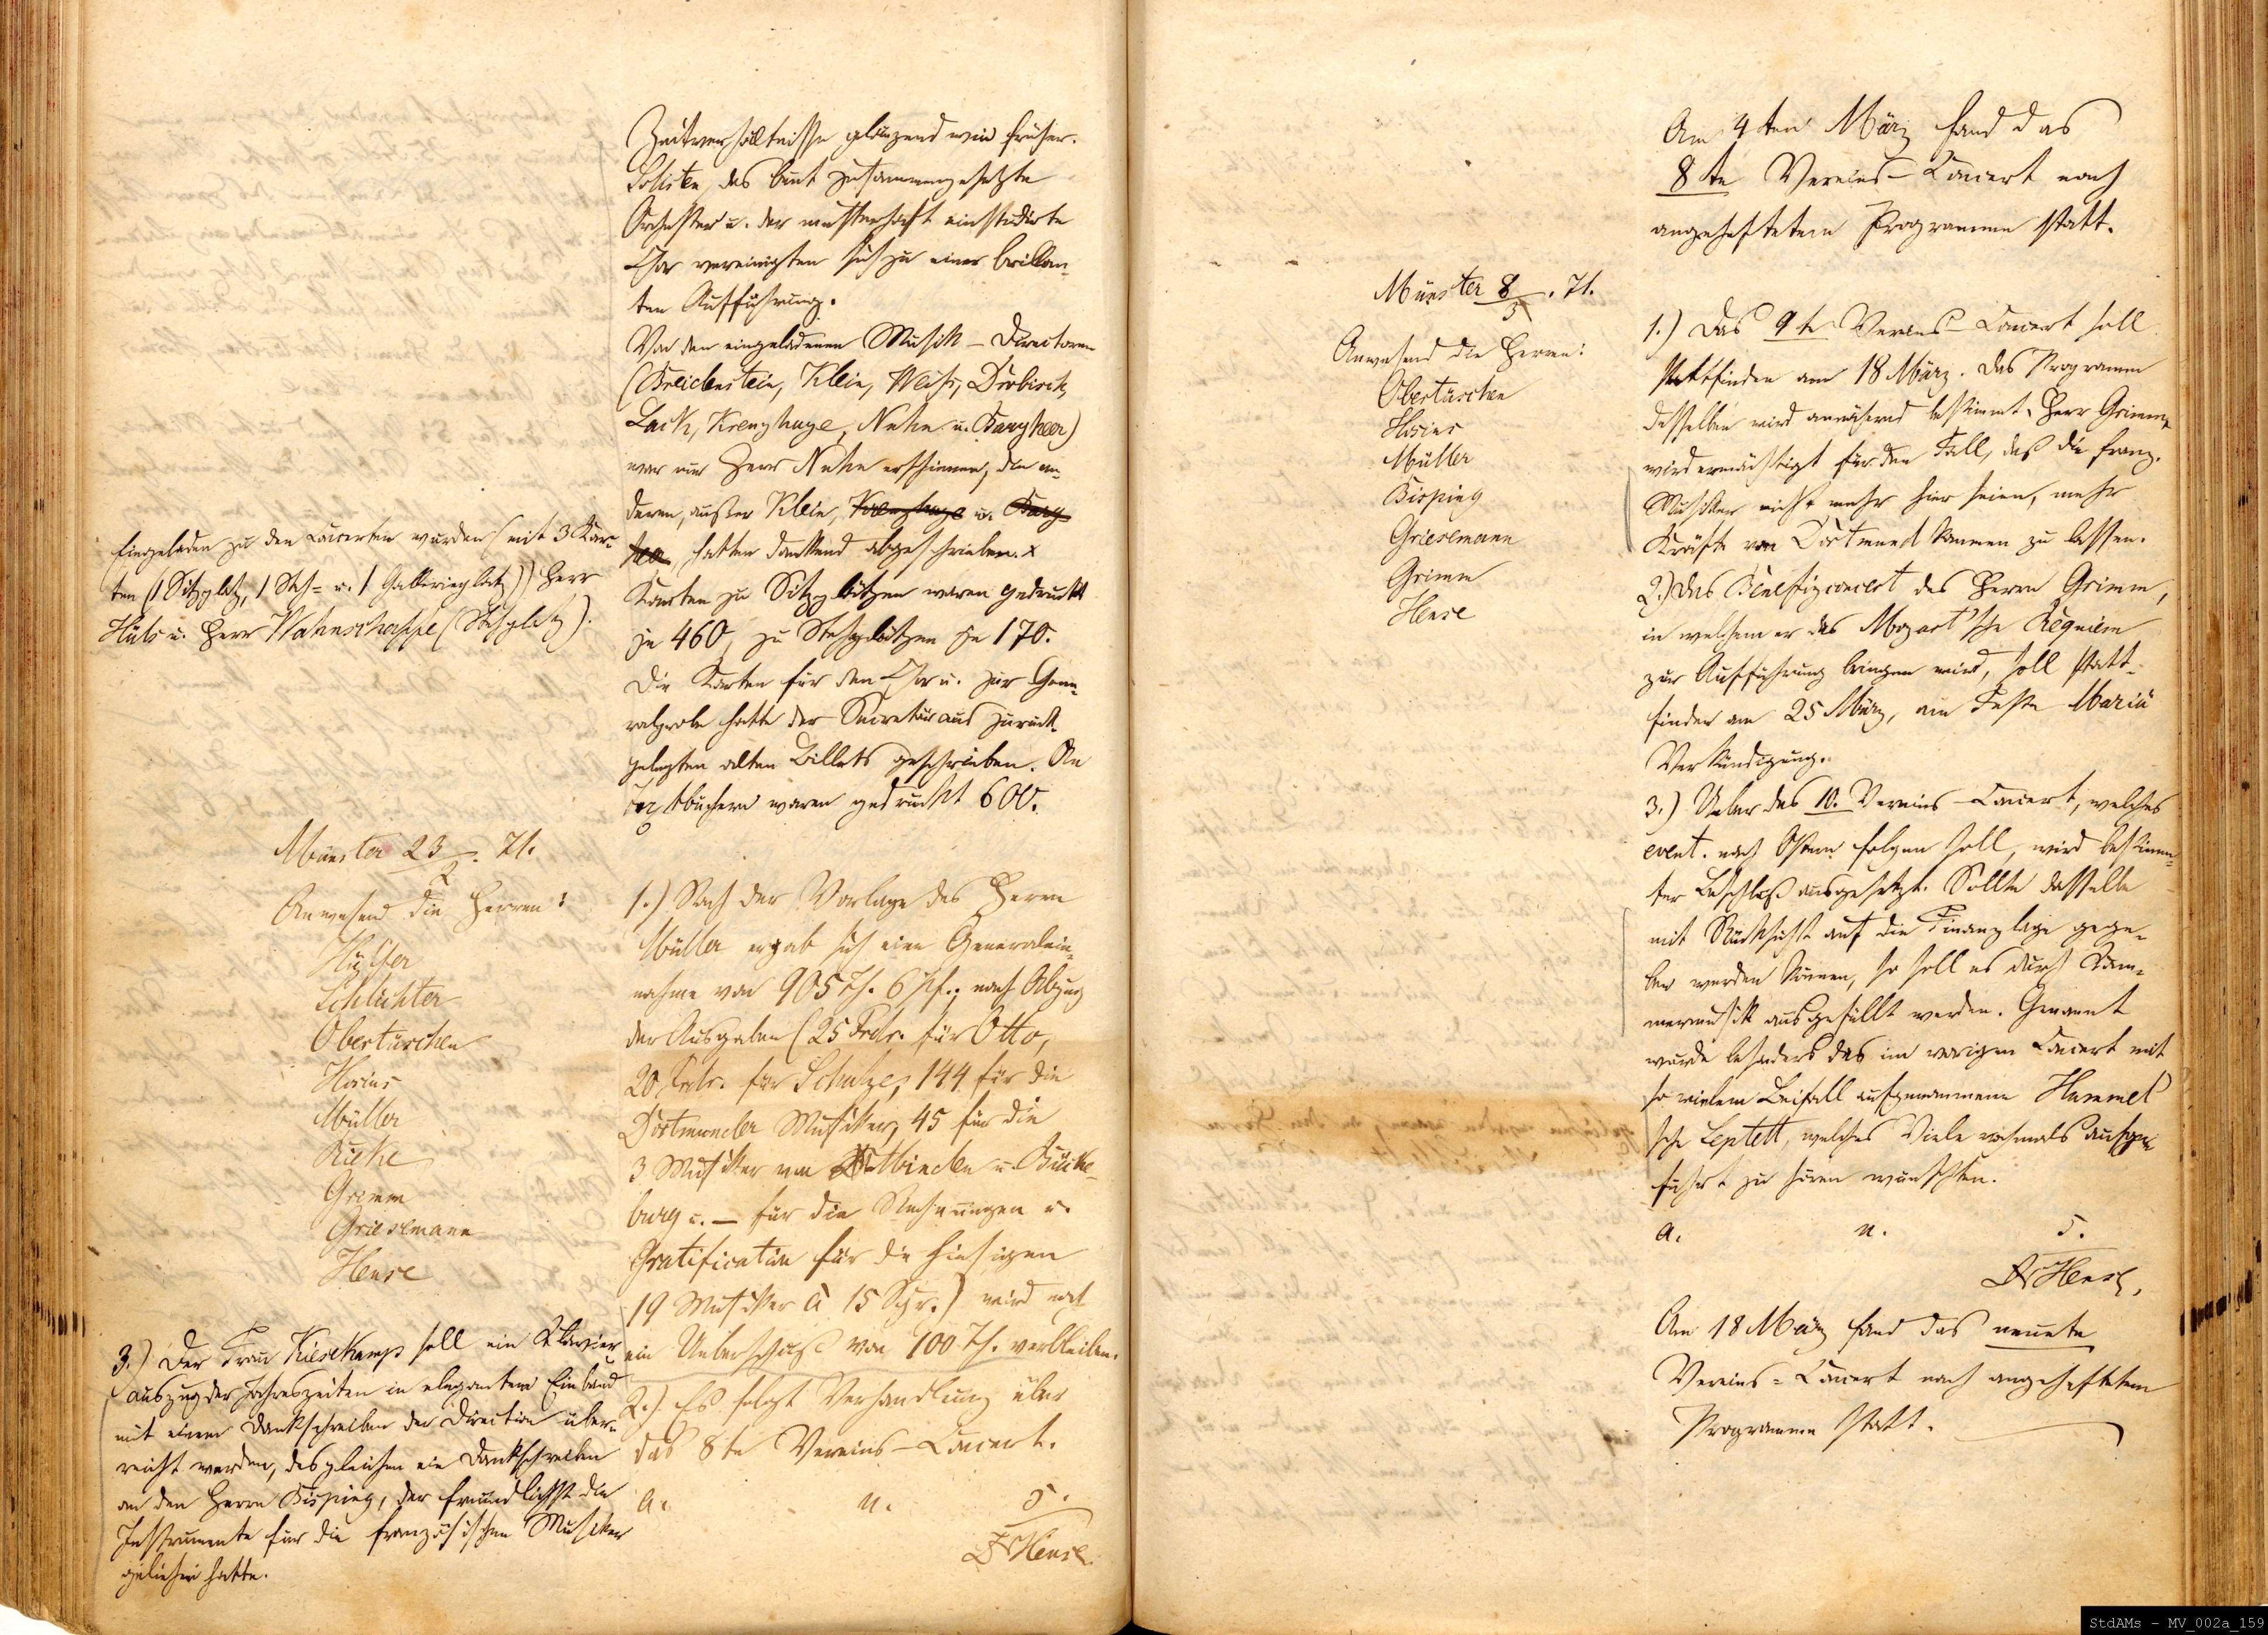 Zeitverhältnisse glänzend wie früher.
Solisten, das bunt zusammengesetzte
Orchester u. der musterhaft einstudirte
Chor vereinigten sich zu einer brillan-
ten Aufführung.
Von den eingeladenen Musik-Directoren
(Breidenstein, Klein, Weiß, Drobisch,
Lack, Krenzhage, Nehn u. Bargheer)
war nur Herr Nehn erschienen, die an-
deren, außer Klein, Krenzhage u. Barg-
heer, hatten dankend abgeschrieben. x
Karten zu Sitzplätzen waren gedruckt
je 460, zu Stehplätzen je 170.
Die Karten für den Chor u. zur Gene-
ralprobe hatte der Secretär aus zurück-
gelegten alten Billets geschrieben. An
Textbüchern waren gedruckt 600.
Eingeladen zu den Concerten wurden (mit 3 Kar-
ten (1 Sitzplatz, 1 Steh- u. 1 Gallerieplatz)) Herr
Hüls u. Herr Wahnschaffe (Stehplatz).
Münster 23/2. 71.
Anwesend die Herren:
Hülfer
Schlichter
Obertüschen
Hosius
Müller
Kuhe
Grimm
Grieselmann
Hense
1.) Nach der Vorlage des Herrn
Müller ergab sich eine Generalein-
nahme von 905 Th. 6 Pf.; nach Abzug
der Ausgaben (25 Frdr. für Otto,
20 Frdr. für Schulze, 144 für die
Dortmunder Musiker, 45 für die
3 Musiker von Minden u. Bücke-
burg u. — für die Rechnungen u.
Gratification für die hiesigen
19 Musiker à 15 Sgr.) wird noch
ein Ueberschuß von 100 Th. verbleiben.
2.) Es folgt Verhandlung über
das 8te Vereins-Concert.
a. u. s.
Dr Hense.
3.) Der Frau Kiesekamp soll ein Klavier-
auszug der Jahreszeiten in elegantem Einband
mit einem Dankschreiben der Direction über-
reicht werden, desgleichen ein Dankschreiben
an den Herrn Bisping, der freundlichst die
Instrumente für die französischen Musiker
geliehen hatte.
Am 4ten März fand das
8te Vereins-Concert nach
angeheftetem Programm statt.
Münster 8/3. 71.
Anwesend die Herren:
Obertüschen
Hosius
Müller
Bisping
Grieselmann
Grimm
Hense
1.) Das 9te Vereins-Concert soll
stattfinden am 18 März. Das Programm
desselben wird annähernd bestimmt. Herr Grimm
wird ermächtigt für den Fall, daß die franz.
Musiker nicht mehr hier seien, mehr
Kräfte von Dortmund kommen zu lassen.
2.) Das Benefizconcert des Herrn Grimm,
in welchem er das Mozart'sche Requiem
zur Aufführung bringen wird, soll statt-
finden am 25 März, am Feste Mariä
Verkündigung.
3.) Ueber das 10. Vereins-Concert, welches
event. nach Ostern folgen soll, wird bestimm-
ter Beschluß ausgesetzt. Sollte dasselbe
mit Rücksicht auf die Finanzlage gege-
ben werden können, so soll es durch Kam-
mermusik ausgefüllt werden. Genannt
wurde besonders das im vorigen Concert mit
so vielem Beifall aufgenommene Hummel
sche Septett, welches Viele nochmals aufge-
führt zu hören wünschten.
a. u. s.
Dr Hense.
Am 18 März fand das neunte
Vereins-Concert nach angeheftetem
Programm statt.
StdAMs - MV_002a_159